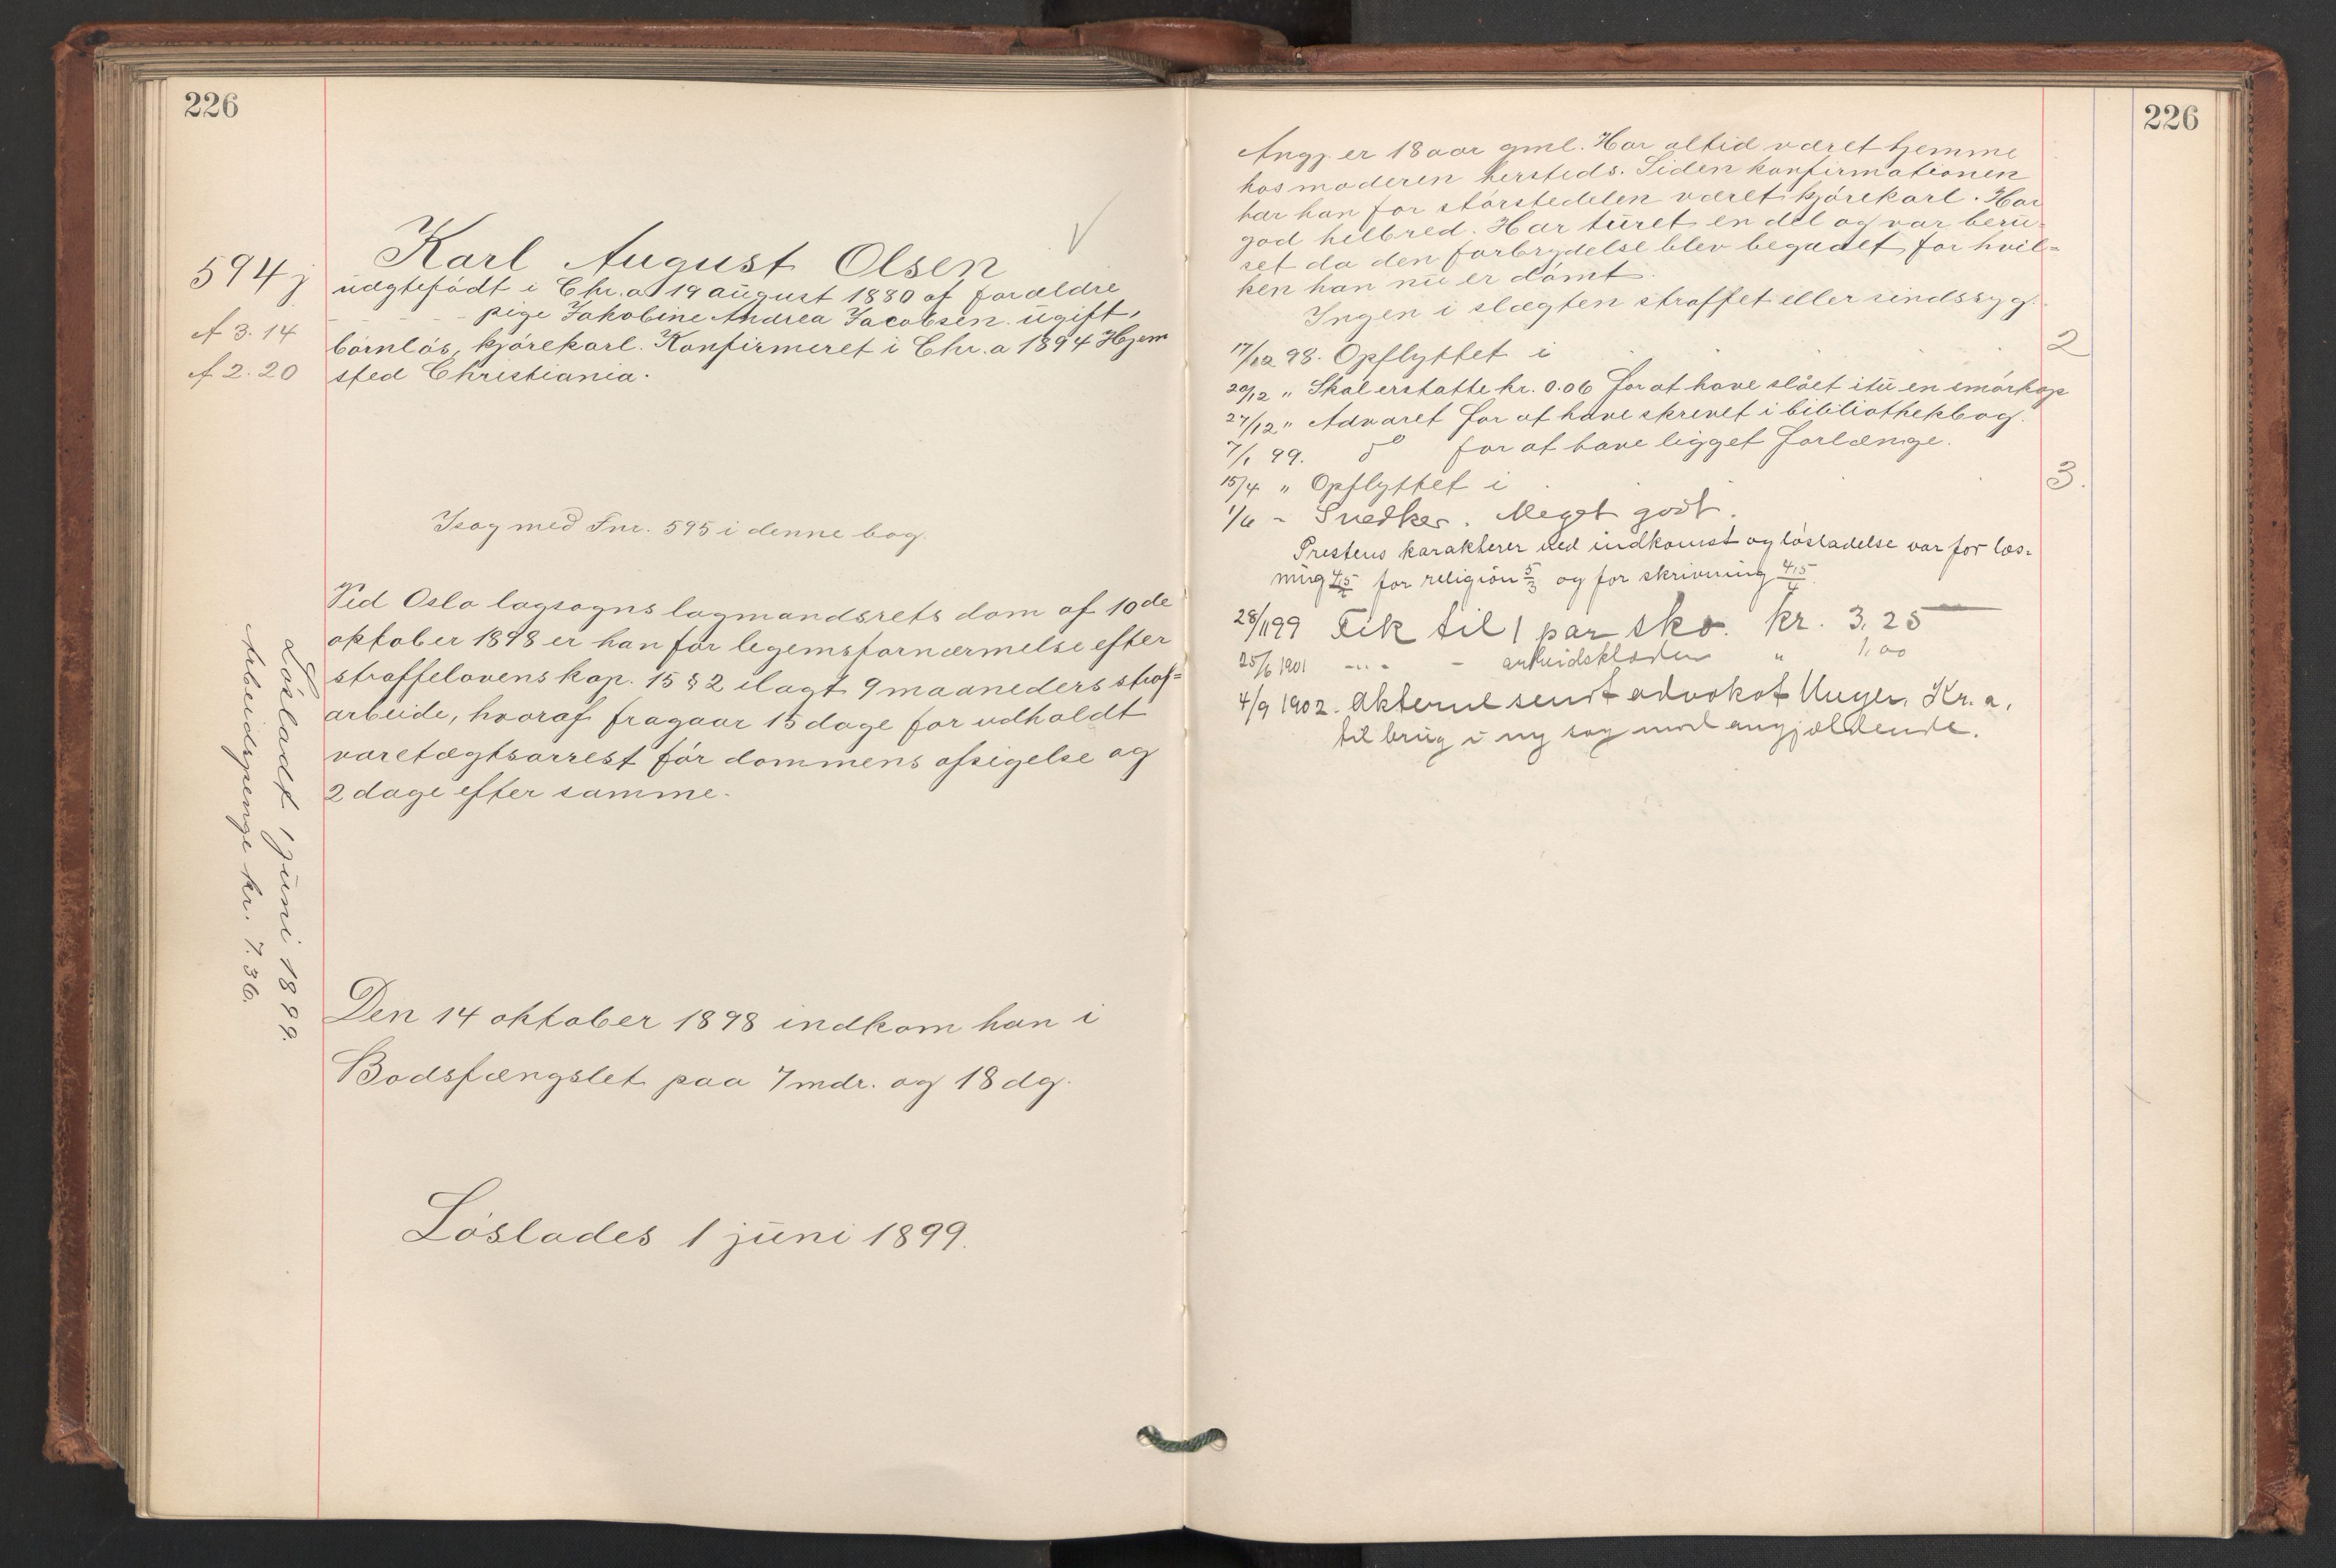 226
Karl August Olsen
594 j
uægtefødt i Chr.a 19 august 1880 af forældre
pige Jakobine Andrea Jacobsen. ugift,
A 3.14
børnløs, kjørekarl. Konfirmeret i Chr.a 1894 Hjem
A 2.20
sted Christiania.
Isag med Fnr. 595 i denne bog.
Ved Oslo lagsogns lagmandsrets dom af 10de
oktober 1898 er han for legemsfornærmelse efter
straffelovens kap. 15 § 2 ilagt 9 maaneders straf=
arbeide, hvoraf fragaar 15 dage for udholdt
varetægtsarrest før dommens afsigelse og
2 dage efter samme.
Løsladt 1 juni 1899.
Arbeidspenge kr. 7.36.
Den 14 oktober 1898 indkom han i
Bodsfængslet paa 7 mdr. og 18 dg.
Løslades 1 juni 1899.
226
Angj. er 18 aar gml. Har altid været hjemme
hos moderen hersteds. Siden konfirmationen
har han for størstedelen været kjørekarl. Har
god helbred. Har turet en del og var beru-
set da den forbrydelse blev begaaet for hvil=
ken han nu er dømt.
Ingen i slægten straffet eller sindssyg.
17/12 98. Opflyttet i 2
20/12 " Skal erstatte kr. 0.06 for at have slået itu en smørkop
27/12 " Advaret for at have skrevet i bibliothekbog.
7/1 99. do for at have ligget forlænge.
15/4 " Opflyttet i 3.
1/6 - Snedker. Meget godt.
Prestens karakterer ved indkomst og løsladelse var for læs-
ning 4,5/4 for religion 5/3 og for skrivning 4,5/4.
28/11 99 Fik til 1 par sko. kr. 3,25
25/6 1901 -"- - arbeidsklæder " 1,00
4/9 1902. Akterne sendt advokat Unger, Kr.a,
til brug i ny sag mod angjældende.